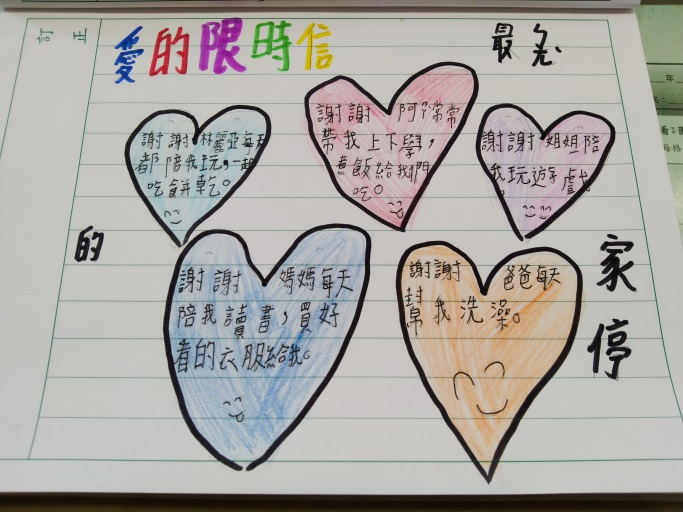 訂正
愛的限時信
最
謝謝林麗亞每天
都陪我玩,一起
吃餅乾。
謝謝 阿 常常
帶我上下學,
煮飯給我們
吃。
謝謝 姐姐陪
我玩遊戲。
的
謝謝 媽媽每天
陪我讀書,買好
看的衣服給我。
謝謝 爸爸每天
幫我洗澡。
家停
年